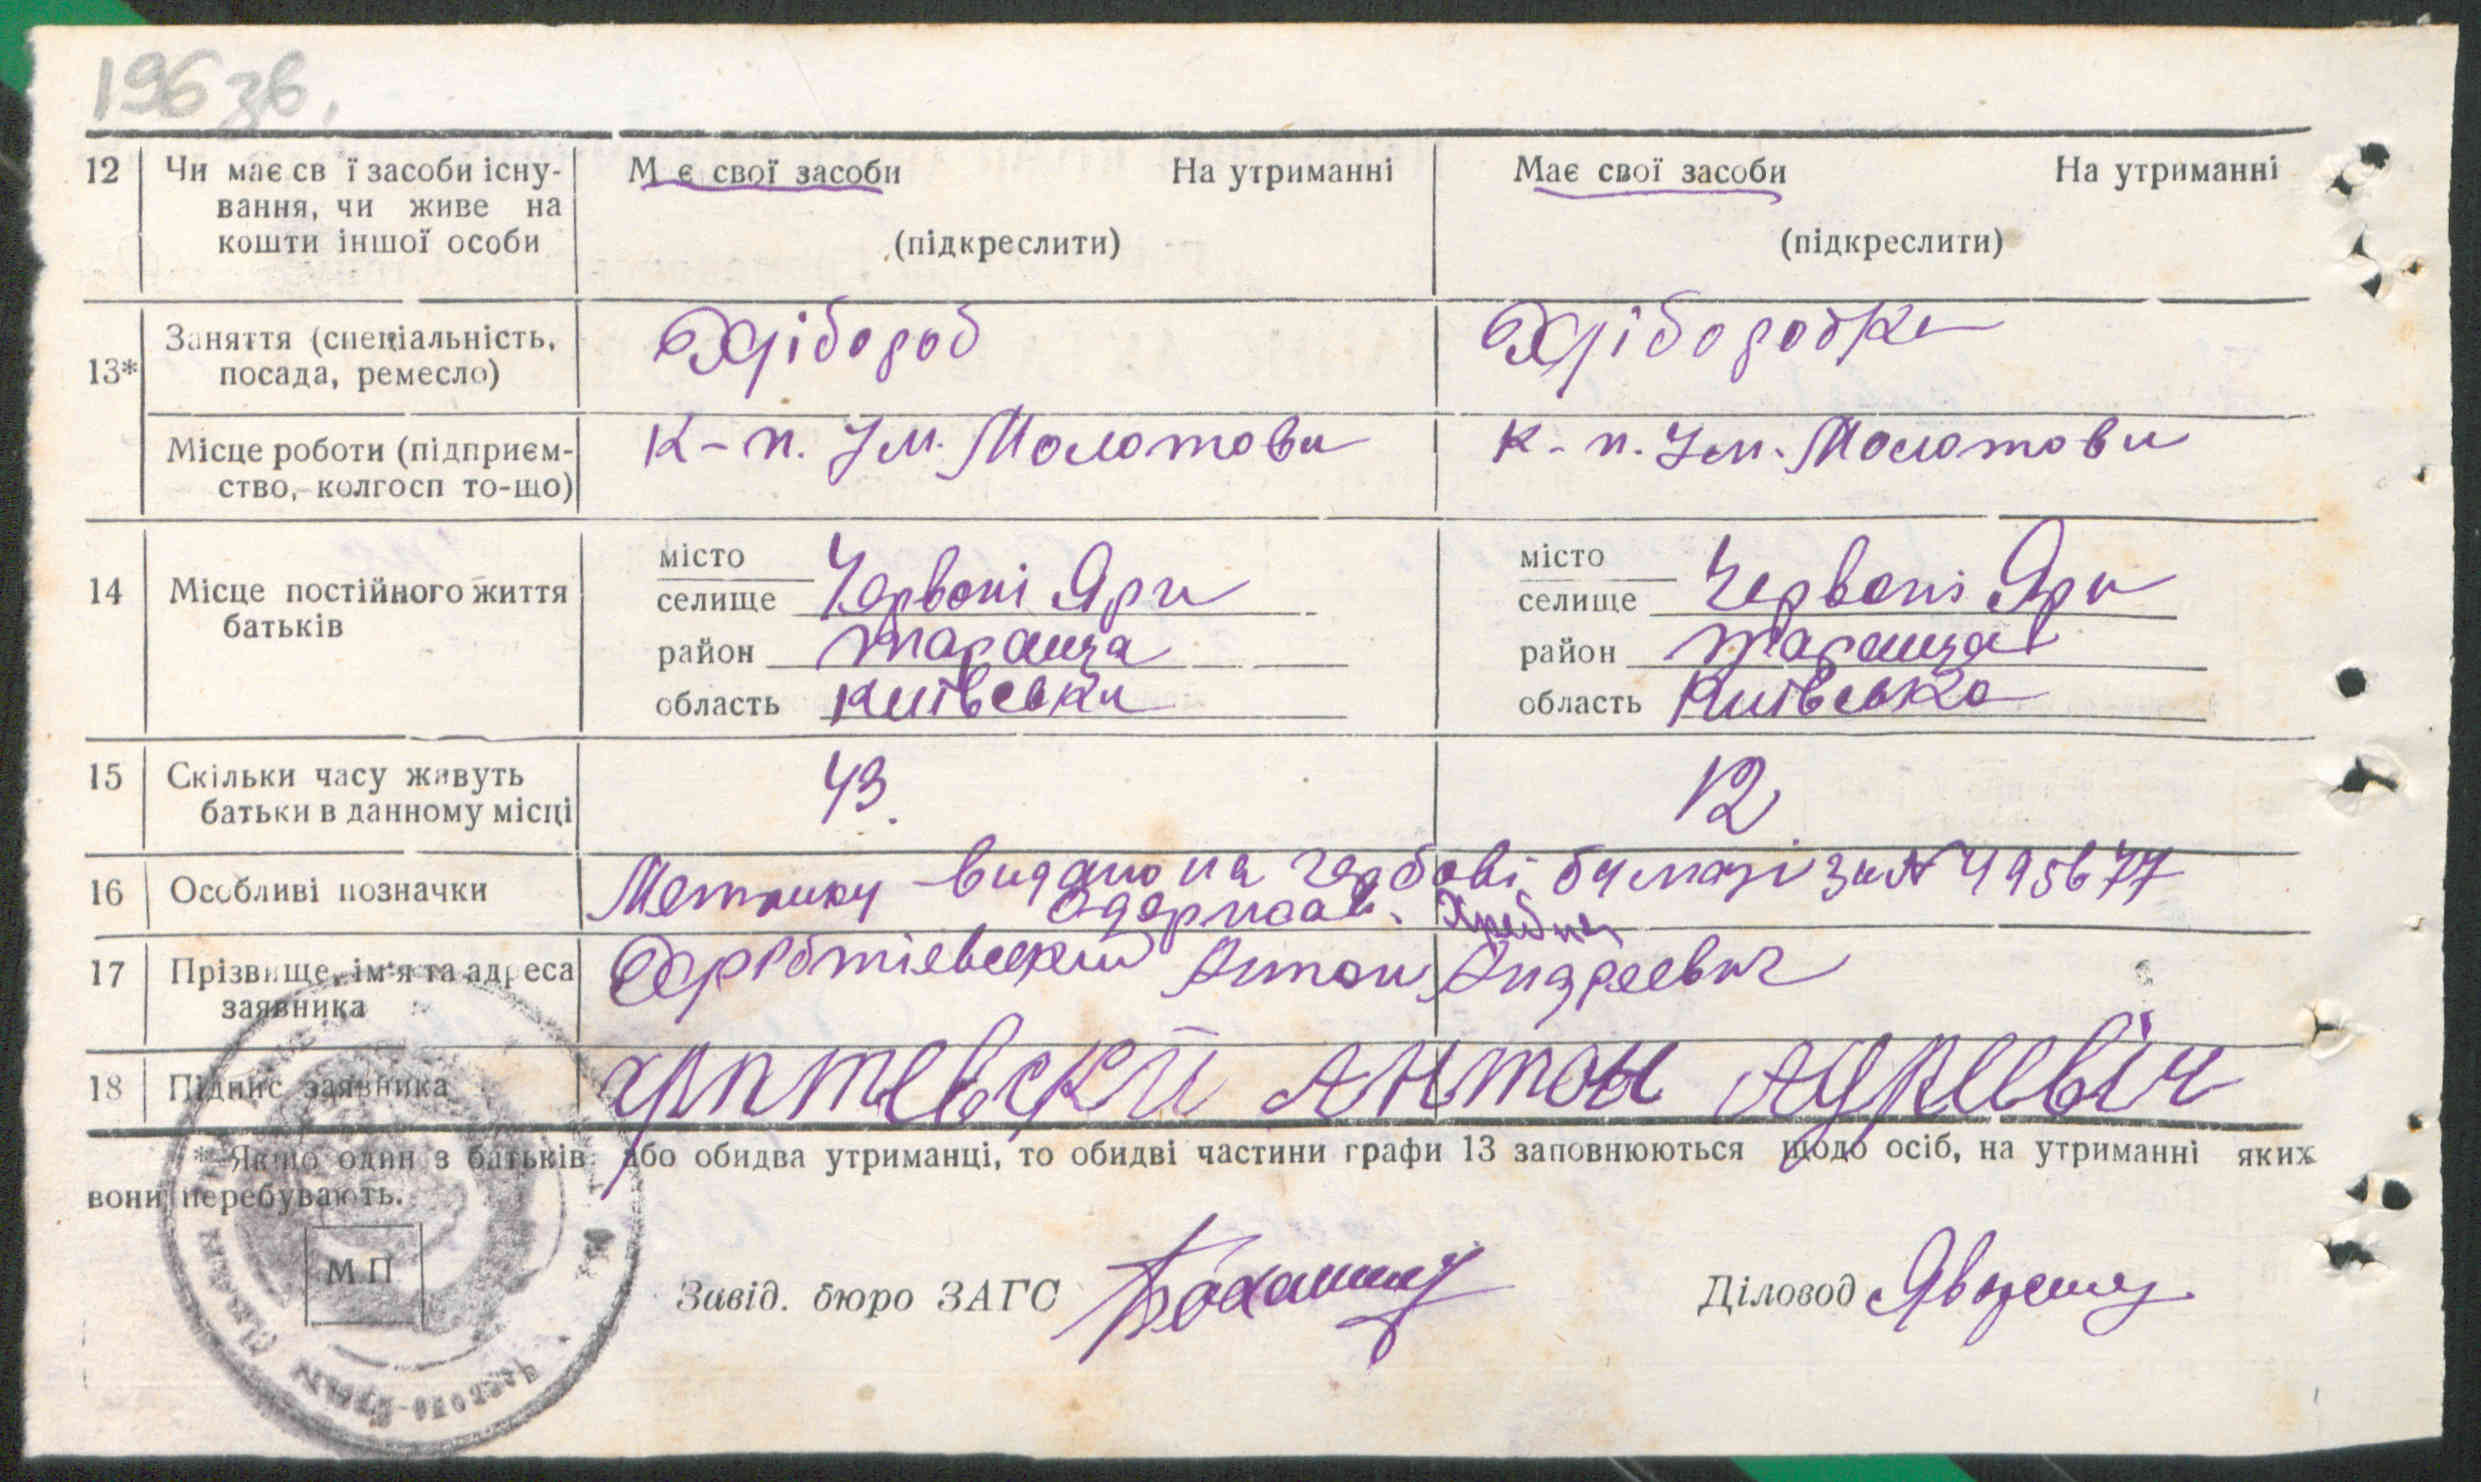 196 зв.
12 Чи має св ї засоби існу- М є свої засоби На утриманні Має свої засоби На утриманні
вання, чи живе на
кошти іншої особи (підкреслити) (підкреслити)
Заняття (спеціальність, Хлібороб Хліборобка
13* посада, ремесло)
Місце роботи (підприєм- К-п. Ім. Молотова К-п. Ім. Молотова
ство, колгосп то-що)
місто Червоні Яри місто Червоні Яри
14 Місце постійного життя селище селище
батьків район Тараща район Тараща
область Київська область Київська
15 Скільки часу живуть 43. 12
батьки в данному місці
16 Особливі позначки Метрику видано на гербові бумазі за № 495677
одержав.
17 Прізвище, ім'я та адреса Антон Андреевич
заявника
18 Підпис заявника хрптевскй Антон Адреевіч
* Якщо один з батьків або обидва утриманці, то обидві частини графи 13 заповнюються щодо осіб, на утриманні яких
вони перебувають.
М П
Завід. бюро ЗАГС Діловод